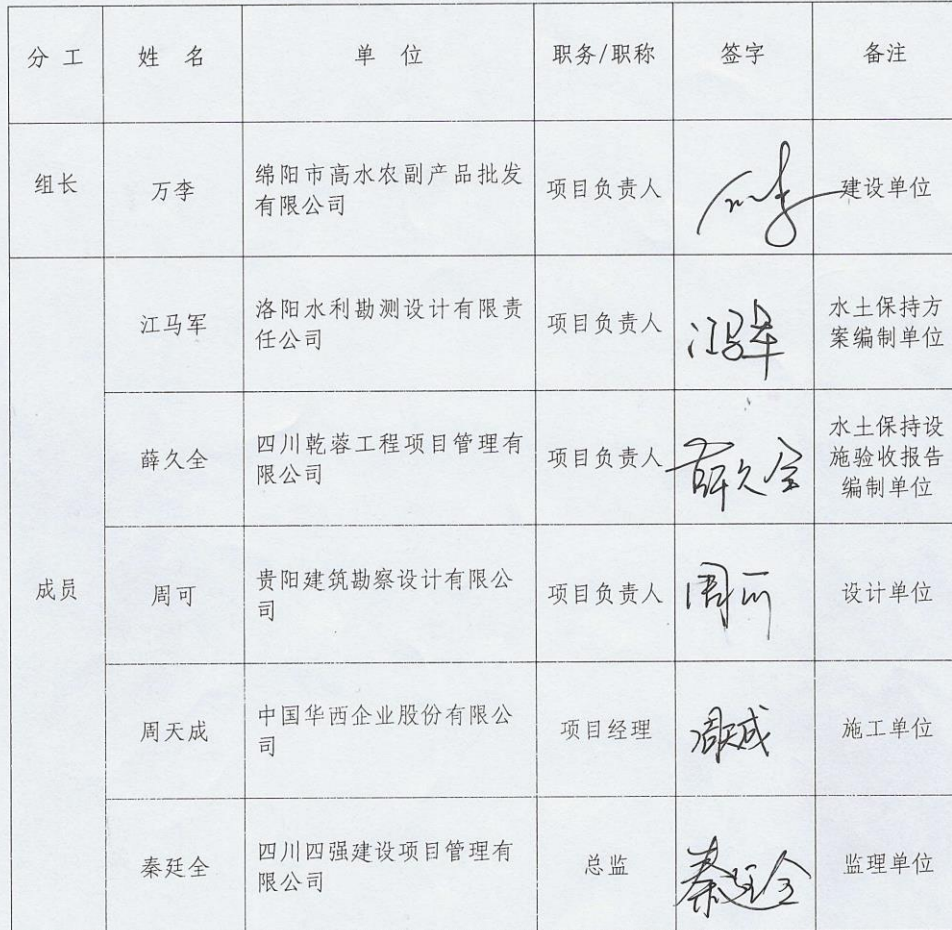 分 工 姓 名 单 位 职务/职称 签字 备注
组长 万李 绵阳市高水农副产品批发 项目负责人 万李 建设单位
有限公司
江马军 洛阳水利勘测设计有限责 项目负责人 江马军 水土保持方
任公司 案编制单位
薛久全 四川乾蓉工程项目管理有 项目负责人 薛久全 水土保持设
限公司 施验收报告
编制单位
成员 周可 贵阳建筑勘察设计有限公 项目负责人 周可 设计单位
司
周天成 中国华西企业股份有限公 项目经理 周天成 施工单位
司
秦廷全 四川四强建设项目管理有 总监 秦廷全 监理单位
限公司